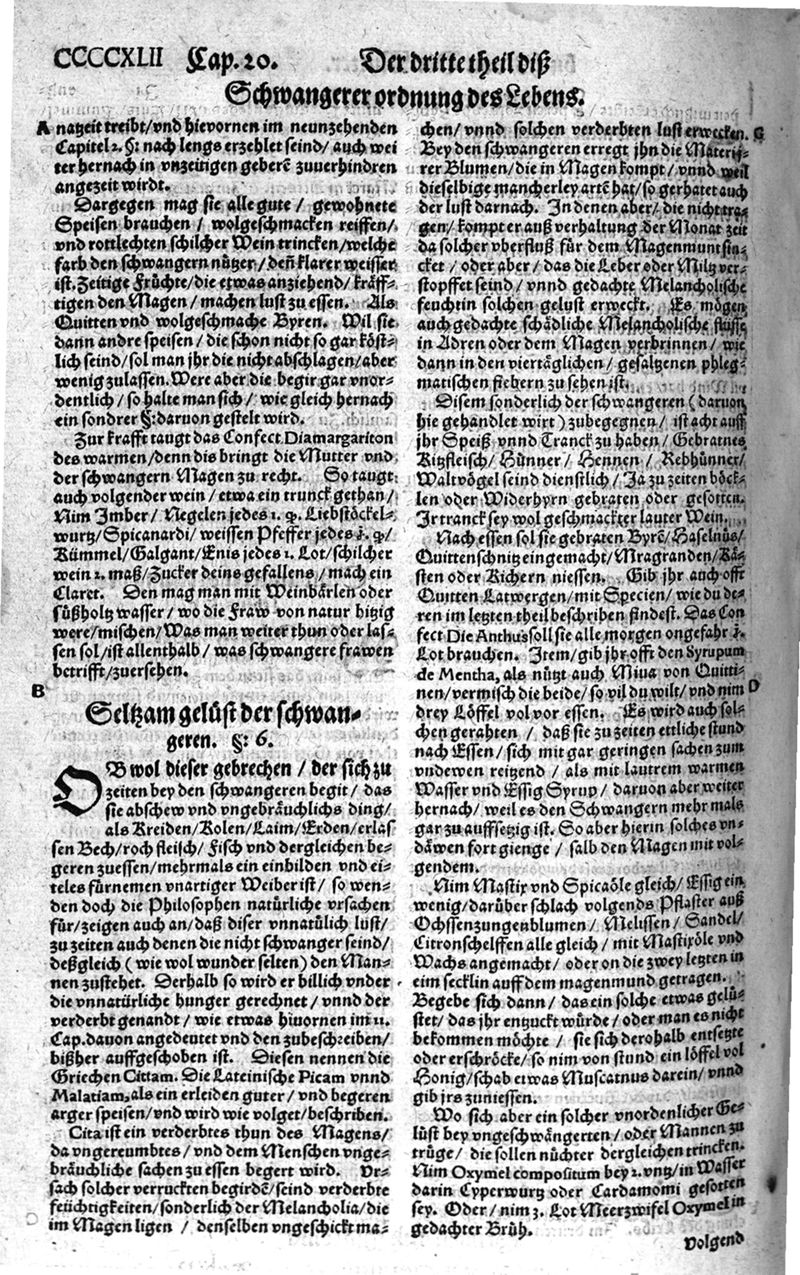 CCCCXLII Cap. 20. Der dritte theil diß
Schwangerer ordnung des Lebens.
A natzeit treibt/vnd hievornen im neunzehenden
Capitel 2. §: nach lengs erzehlet seind/ auch wei
ter hernach in vnzeitigen geberē zuuerhindren
angezeit wirdt.
Dargegen mag sie alle gute / gewohnete
Speisen brauchen / wolgeschmacken reiffen/
vnd rottlechten schilcher Wein trincken/welche
farb den schwangern nützer / deñ klarer weisser
ist. Zeitige Früchte/die etwas anziehend/ kräff-
tigen den Magen / machen lust zu essen. Als
Quitten vnd wolgeschmache Byren. Wil sie
dann andre speisen / die schon nicht so gar köst-
lich seind/ sol man jhr die nicht abschlagen/aber
wenig zulassen. Were aber die begir gar vnor-
dentlich / so halte man sich / wie gleich hernach
ein sondrer §: daruon gestelt wird.
Zur krafft taugt das Confect Diamargariton
des warmen/denn dis bringt die Mutter vnd
der schwangern Magen zu recht. So taugt
auch volgender wein / etwa ein trunck gethan/
Nim Imber / Negelen jedes 1. q. Liebstöckel-
wurtz/Spicanardi/ weissen Pfeffer jedes ½. q/
Kümmel/Galgant/Enis jedes 1. Lot/schilcher
wein 2. maß/Zucker deins gefallens / mach ein
Claret. Den mag man mit Weinbärlen oder
süßholtz wasser / wo die Fraw von natur hitzig
were/mischen/Was man weiter thun oder las-
sen sol/ist allenthalb / was schwangere frawen
betrifft/zuersehen.
B
Seltzam gelüst der schwan-
geren. §: 6.
OB wol dieser gebrechen / der sich zu
zeiten bey den schwangeren begit / das
sie abschew vnd vngebräuchlichs ding/
als Kreiden/Kolen/Laim/Erden/erlas
sen Bech/roch fleisch/ Fisch vnd dergleichen be-
geren zuessen/mehrmals ein einbilden vnd ei-
teles fürnemen vnartiger Weiber ist / so wen-
den doch die Philosophen natürliche vrsachen
für/zeigen auch an/daß diser vnnatülich lust/
zu zeiten auch denen die nicht schwanger seind/
deßgleich ( wie wol wunder selten) den Man-
nen zustehet. Derhalb so wird er billich vnder
die vnnatürliche hunger gerechnet / vnnd der
verderbt genandt / wie etwas hiuornen im 11.
Cap. dauon angedeutet vnd den zubeschreiben/
bißher auffgeschoben ist. Diesen nennen die
Griechen Cittam. Die Lateinische Picam vnnd
Malatiam, als ein erleiden guter / vnd begeren
arger speisen/vnd wird wie volget/beschriben.
Cita ist ein verderbtes thun des Magens/
da vngereumbtes / vnd dem Menschen vnge-
bräuchliche sachen zu essen begert wird. Vr-
sach solcher verruckten begirdē/seind verderbte
feüchtigkeiten/sonderlich der Melancholia/die
im Magen ligen / denselben vngeschickt ma-
chen/ vnnd solchen verderbten lust erwecken. C
Bey den schwangeren erregt jhn die Materij-
rer Blumen/die in Magen kompt / vnnd weil
dieselbige mancherley artē hat/ so gerhatet auch
der lust darnach. In denen aber/ die nicht tra-
gen/ kompt er auß verhaltung der Monat zeit
da solcher vberfluß für dem Magenmunt sin-
cket / oder aber / das die Leber oder Miltz ver-
stopffet seind / vnnd gedachte Melancholische
feuchtin solchen gelust erweckt. Es mögen
auch gedachte schädliche Melancholische flüsse
in Adren oder dem Magen verbrinnen / wie
dann in den viertäglichen / gesalzenen phleg-
matischen fiebern zu sehen ist.
Disem sonderlich der schwangeren ( daruon
hie gehandlet wirt ) zubegegnen / ist acht auff
jhr Speiß vnnd Tranck zu haben / Gebratnes
Kitzfleisch / Hünner / Hennen / Rebhünner/
Waltvögel seind dienstlich / Ja zu zeiten böck-
len oder Widerhyrn gebraten oder gesotten.
Ir tranck sey wol geschmackter lauter Wein.
Nach essen sol sie gebraten Byrē/ Haselnüs/
Quittenschnitz eingemacht/ Mragranden/Kä-
sten oder Kichern niessen. Gib jhr auch offt
Quitten Latwergen/mit Specien/ wie du de-
ren im letzten theil beschriben findest. Das Con
fect Die Anthus soll sie alle morgen ongefahr ½.
Lot brauchen. Item/ gib jhr offt den Syrupum
de Mentha, als nützt auch Miua von Quitti-
nen/ vermisch die beide/ so vil du wilt/ vnd nim D
drey Löffel vol vor essen. Es wird auch sol-
chen gerahten / daß sie zu zeiten ettliche stund
nach Essen/ sich mit gar geringen sachen zum
vndewen reitzend / als mit lautrem warmen
Wasser vnd Essig Syrup / daruon aber weiter
hernach/ weil es den Schwangern mehr mals
gar zu auffsetzig ist. So aber hierin solches vn-
däwen fort gienge / salb den Magen mit vol-
gendem.
Nim Mastix vnd Spicaöle gleich/ Essig ein
wenig/darüber schlach volgends Pflaster auß
Ochssenzungenblumen / Melissen / Sandel/
Citronschelffen alle gleich / mit Mastixöle vnd
Wachs angemacht/ oder on die zwey letzten in
eim secklin auff dem magenmund getragen.
Begebe sich dann / das ein solche etwas gelü-
stet/ das jhr entzuckt würde / oder man es nicht
bekommen möchte / sie sich derohalb entsetzte
oder erschröcke/ so nim von stund ein löffel vol
Honig/schab etwas Muscatnus darein/ vnnd
gib jrs zuniessen.
Wo sich aber ein solcher vnordenlicher Ge-
lüst bey vngeschwängerten / oder Mannen zu
trüge/ die sollen nüchter dergleichen trincken.
Nim Oxymel compositum bey 2. vntz/ in Wasser
darin Cyperwurtz oder Cardamomi gesotten
sey. Oder/ nim 3. Lot Meerzwifel Oxymel in
gedachter Brüh.
Volgend